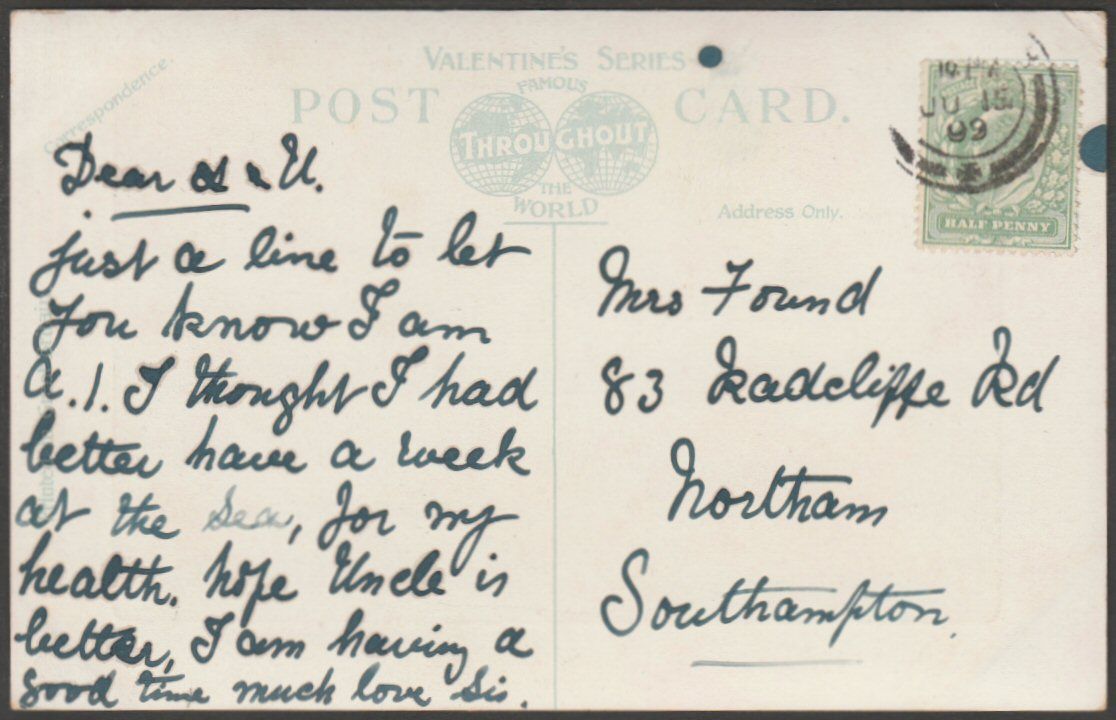 Correspondence.
VALENTINE'S SERIES
FAMOUS
POST CARD.
THROUGHOUT
THE
WORLD
Address Only.
JU 15
09
HALF PENNY
Dear A & U.
just a line to let
you know I am
A.1. I thought I had
better have a week
at the sea, for my
health. hope Uncle is
better, I am having a
good time much love Sis.
Mrs Found
83 Radcliffe Rd
Northam
Southampton.